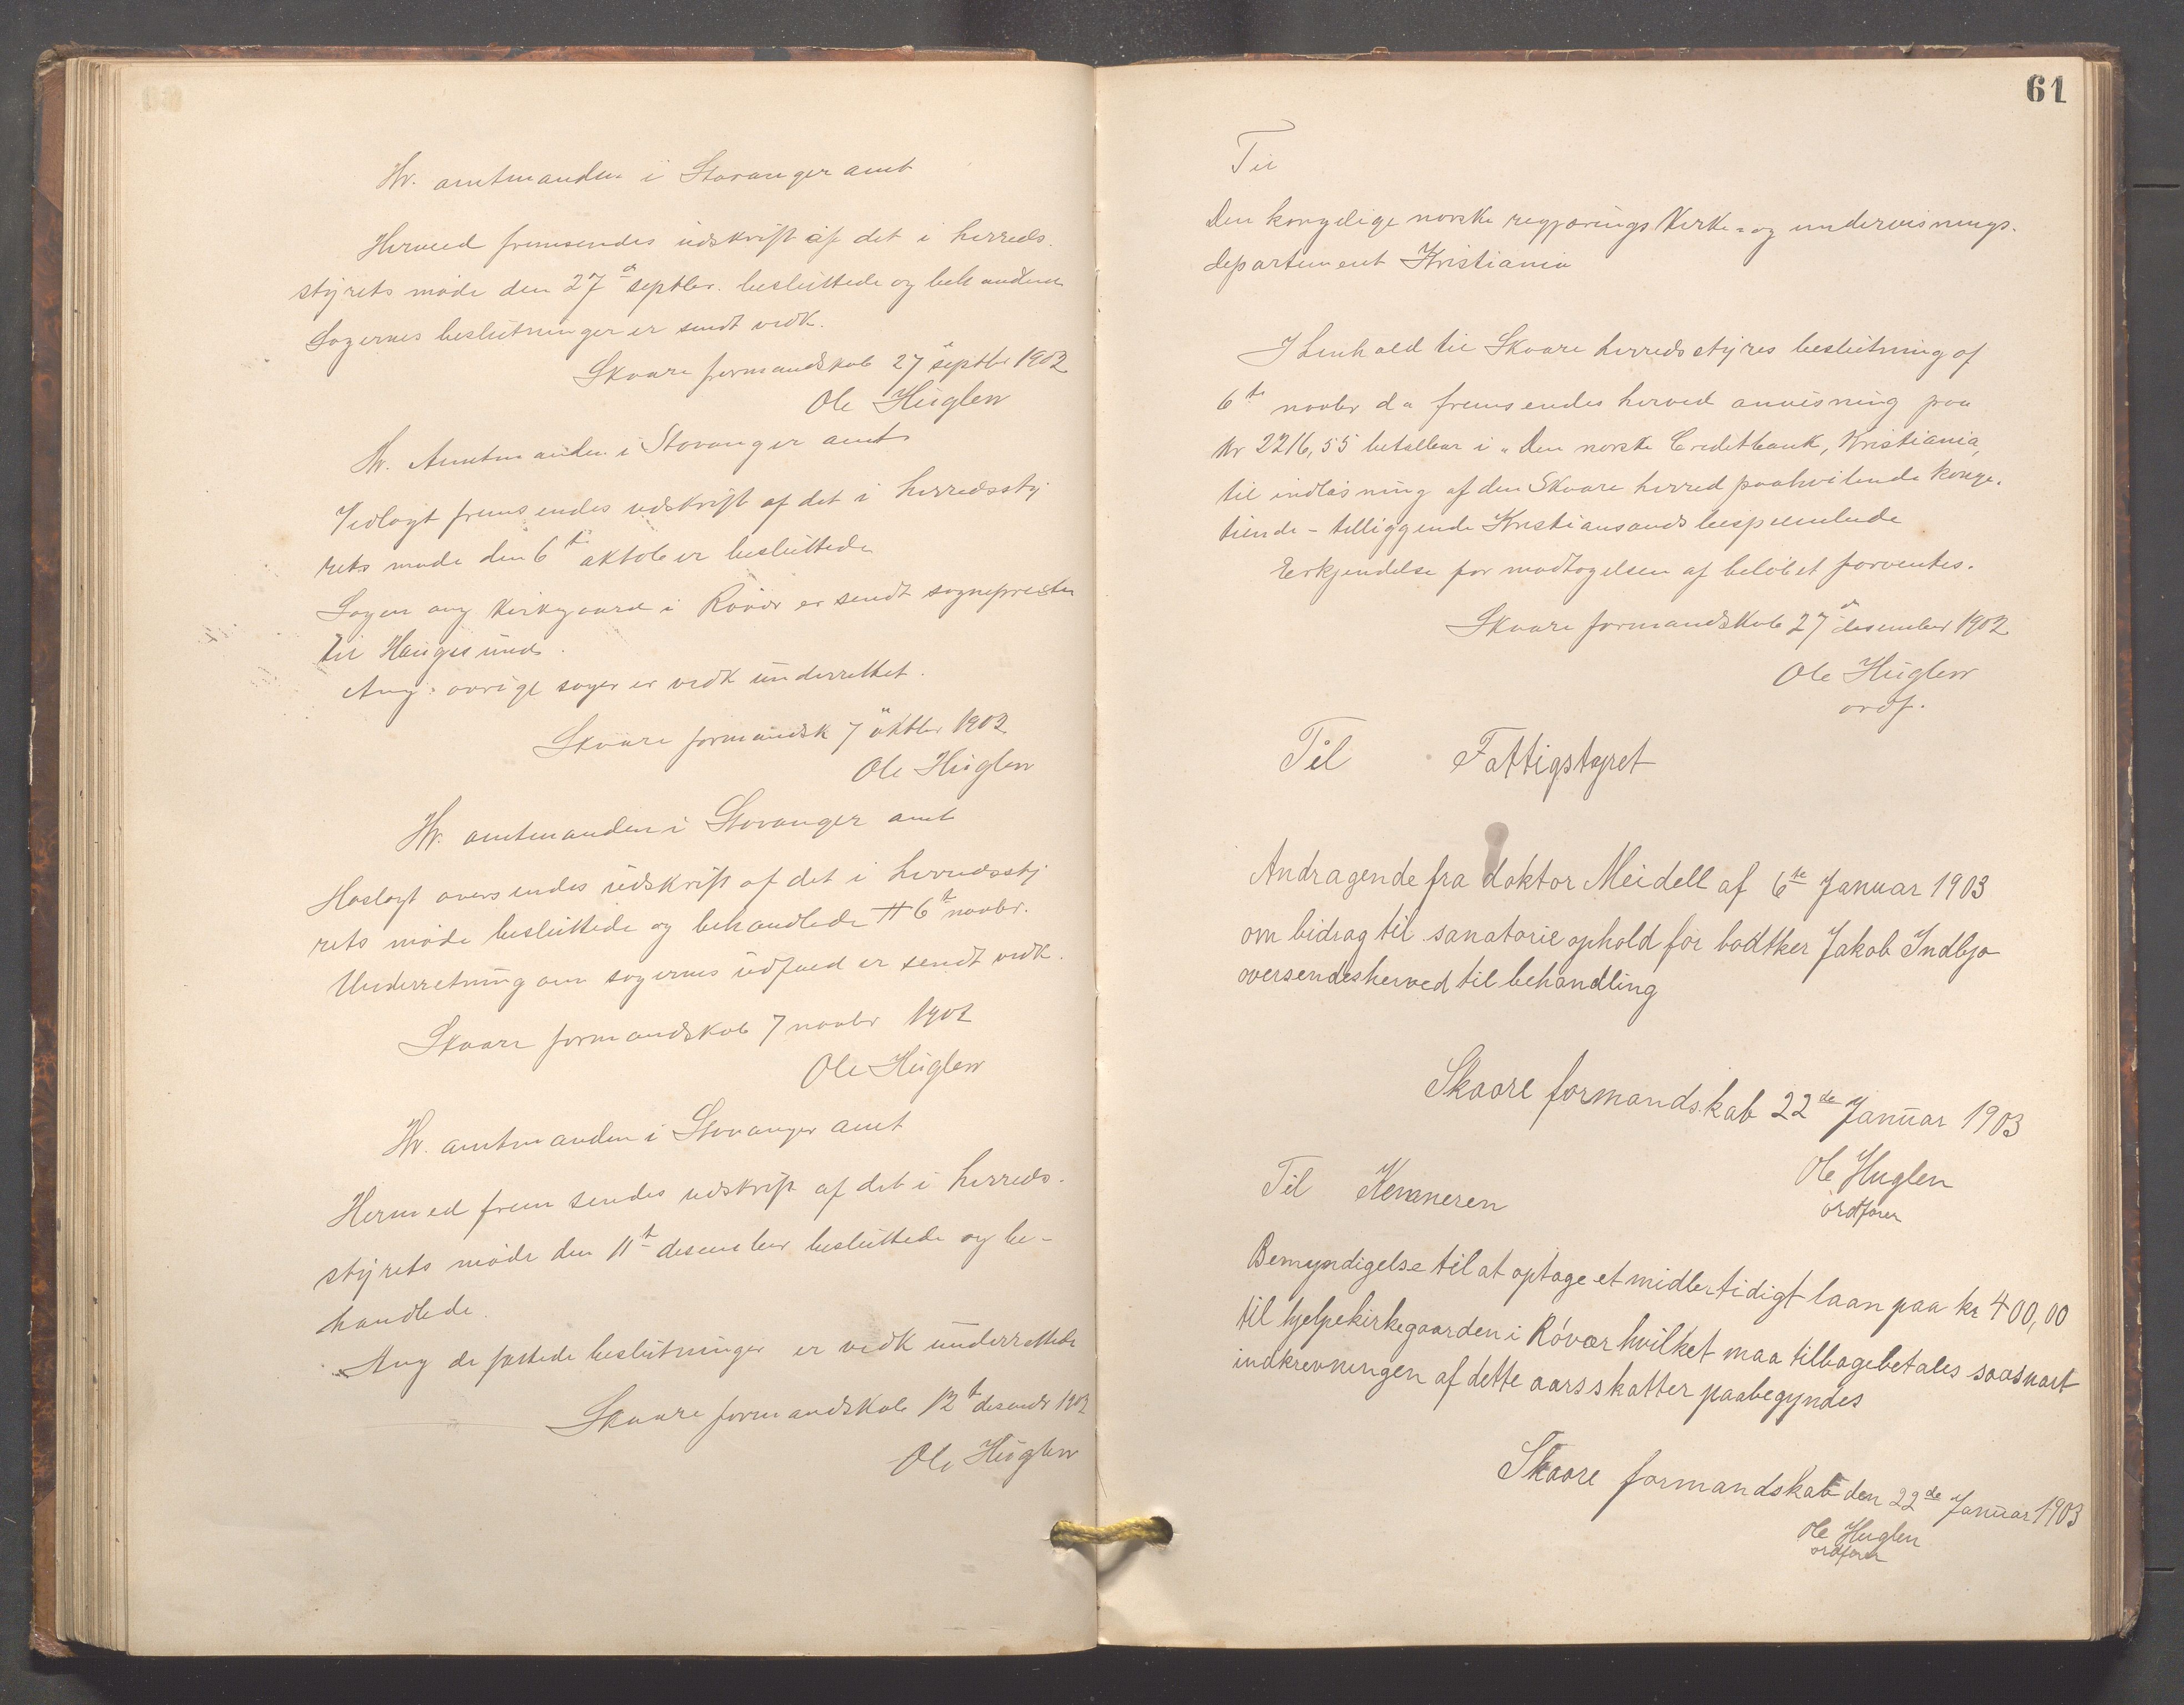 Hr. amtmanden i Stavanger amt
Herved fremsendes udskrift af det i herreds-
styrets møde den 27de septbr. besluttede og behandlede
Sagernes beslutninger er sendt vedk.
Skaare formandskab 27 septbr 1902
Ole Huglen
Hr. Amtmanden i Stavanger amt
Vedlagt fremsendes udskrift af det i herredssty
rets møde den 6te oktober besluttede
Sagen ang kirkegaard i Røvær er sendt sognepresten
til Haugesund.
Ang: øvrige sager er vedk underrettet.
Skaare formandsk 7 oktbr 1902
Ole Huglen
Hr. amtmanden i Stavanger amt
Hoslagt oversendes udskrift af det i herredssty
rets møde besluttede og behandlede 6te novbr.
Underretning om sagernes udfald er sendt vedk.
Skaare formandskab 7 novbr 1902
Ole Huglen
Hr. amtmanden i Stavanger amt
Hermed fremsendes udskrift af det i herreds-
styrets møde den 11te desember besluttede og be-
handlede.
Ang de fattede beslutninger er vedk underrettede
Skaare formandskab 12te desembr 1902
Ole Huglen
61
Til
Den kongelige norske regjærings Kirke- og undervisnings-
departement Kristiania
I henhold til Skaare herredsstyres beslutning af
6te novbr d a fremsendes herved anvisning paa
kr 2216,55 betalbar i "Den norske Creditbank, Kristiania,
til indløsning af den Skaare herred paahvilende konge-
tiende - tilliggende Kristiansands
Erkjendelse for modtagelsen af beløbet forventes.
Skaare formandskab 27de desember 1902
Ole Huglen
ordf.
Til Fattigstyret
Andragende fra doktor Meidell af 6te Januar 1903
om bidrag til sanatorieophold for bødtker Jakob Indbjo
oversendes herved til behandling
Skaare formandskab 22de Januar 1903
Ole Huglen
ordfører
Til Kemneren
Bemyndigelse til at optage et midlertidigt laan paa kr 400,00
til hjelpekirkegaarden i Røvær hvilket maa tilbagebetales saasnart
indkrevningen af dette aars skatter paabegyndes
Skaare formandskab den 22de Januar 1903
Ole Huglen
ordfører